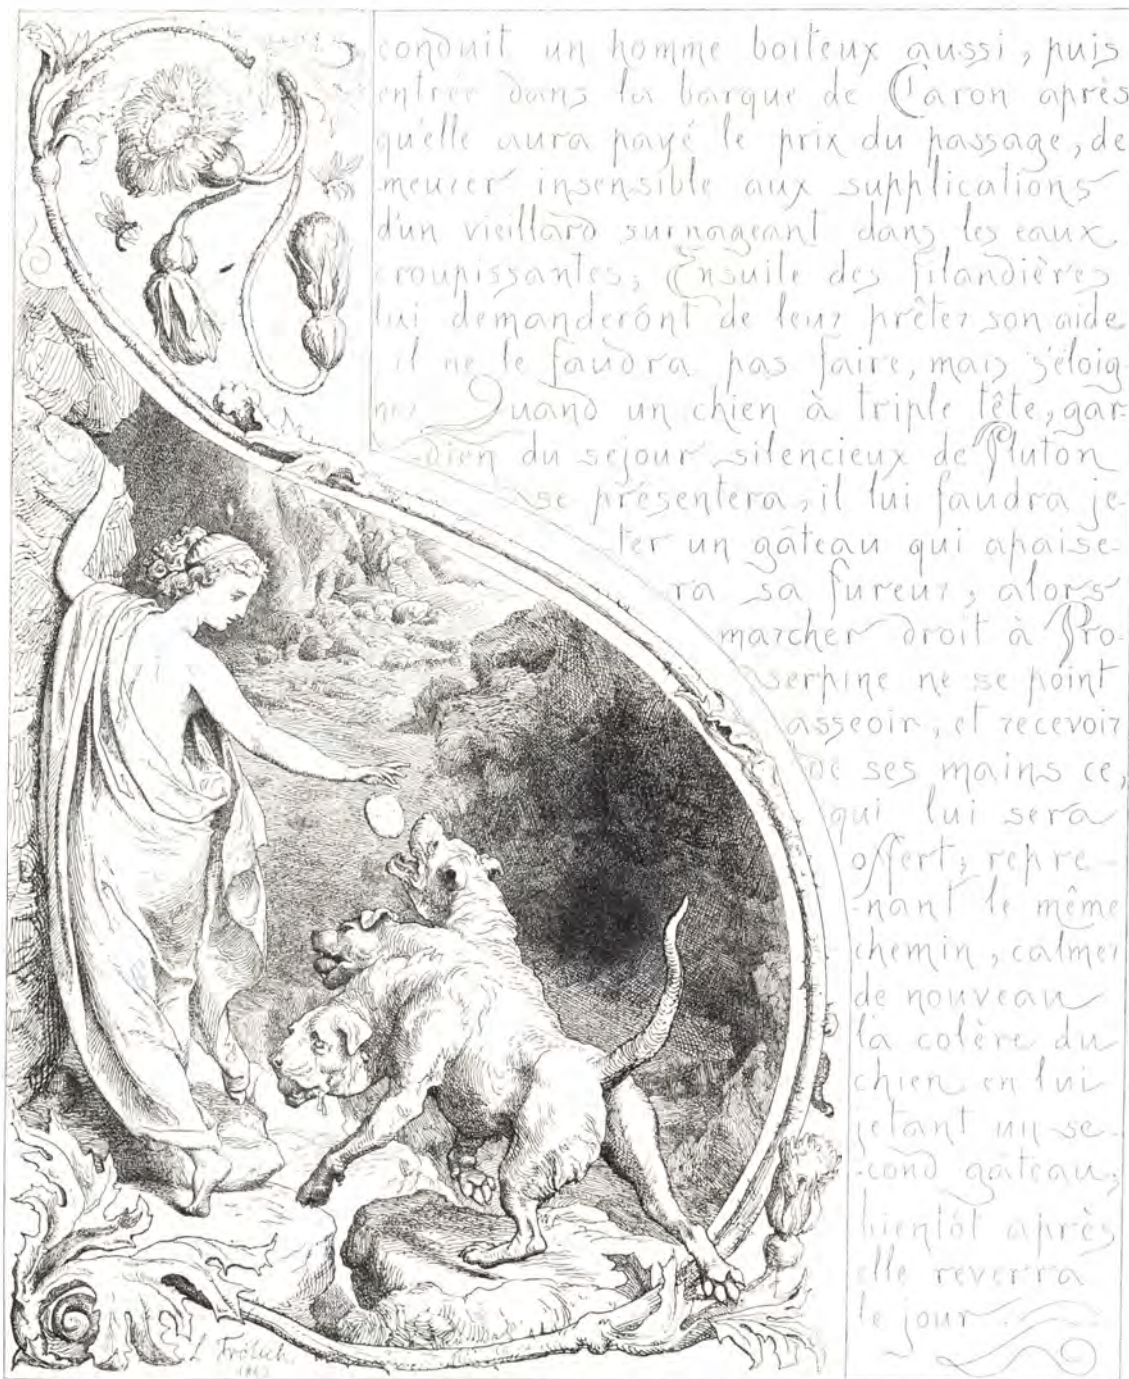 conduit un homme boiteux aussi, puis
entrée dans la barque de Caron après
qu'elle aura payé le prix du passage, de
meurer insensible aux supplications
d'un vieillard surnageant dans les eaux
croupissantes; Ensuite des filandières
lui demanderónt de leur prêter son aide
il ne le faudra pas faire, mais s'éloig-
ner Quand un chien à triple tête, gar-
-dien du sejour silencieux de Pluton
se présentera, il lui faudra je-
ter un gâteau qui apaise-
ra sa fureur; alors
marcher droit à Pro-
serpine ne se point
asseoir, et recevoir
de ses mains ce,
qui lui sera
offert; repre-
-nant le même
chemin, calmer
de nouveau
la colère du
chien en lui
jetant un se-
-cond gâteau;
bientôt après
elle reverra
le jour.
L. Frölich.